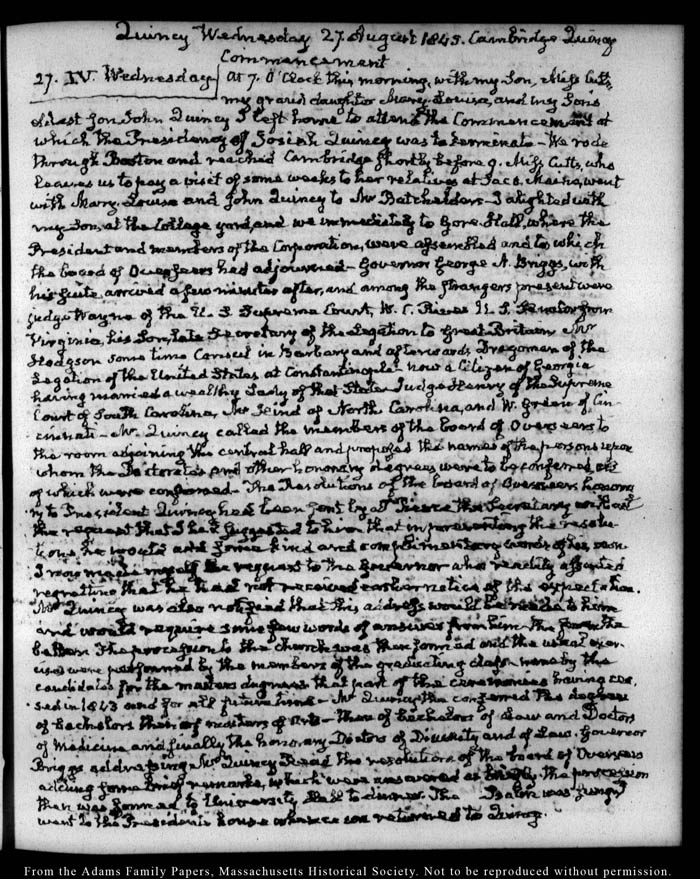 Quincy Wednesday 27. August 1845. Cambridge Quincy
Commencement
27. IV. Wednesday
At 7. O'Clock this morning, with my Son, Miss Cutts,
my grand daughter Mary-Louisa, and my Son's
eldest Son John Quincy I left home to attend the Commencement at
which the Presidency of Josiah Quincy was to terminate - We rode
through Boston and reached Cambridge shortly before 9. Miss Cutts, who
leaves us to pay a visit of some weeks to her relatives at Saco. Maine, went
with Mary-Louisa and John Quincy to Mr Batchelder's - I alighted with
my Son, at the College yard, and we immediately to Gore-Hall, where the
President and members of the Corporation, were assembled and to which
the board of Overseers had adjourned - Governor George N. Briggs, with
his suite, arrived a few minutes after, and among the strangers present were
Judge Wayne of the U. S. Supreme Court, W. C. Rives U. S. Senator from
Virginia, his Son, late Secretary of the Legation to Great-Britain Mr
Hodgson some time Consul in Barbary and afterwards Dragoman of the
Legation of the United States at Constantinople - now a Citizen of Georgia
having married a wealthy Lady of that State Judge Henry of the Supreme
Court of South Carolina, Mr of North Carolina, and W. Green of Cin-
cinnati - Mr Quincy called the members of the board of Overseers to
the room adjoining the central hall and proposed the names of the persons upon
whom the Doctorates and other honorary degrees were to be conferred all
of which were confirmed - The Resolutions of the board of Overseers honora-
ry to President Quincy had been sent by Mr Pierce the Secretary without
the request that I had suggested to him, that in presenting the resolu-
tions he would add some kind and complimentary words of his own.
I now made myself the request to the Governor who readily assented
regretting that he had not received earlier notice of the expectation.
Mr Quincy was also notified that this address would be made to him
and would require some few words of answer from him - the the
better. The procession to the church was then formed and the usual exer-
cises were performed by the members of the graduating class none by the
candidates for the masters degrees that part of the ceremonies having cea-
sed in 1843 and for all future time - Mr Quincy then conferred the degrees
of Bachelors then of masters of Arts - then of bachelors of Law and Doctors
of Medicine, and finally the honorary Doctors of Divinity and of Law. Governor
Briggs addressing Mr Quincy Read the resolutions of the board of Overseers
adding some brief remarks, which were answered as . The procession
then was formed to University Hall to dinner. The Psalm was sung
went to the President's house whence we returned to Quincy.
From the Adams Family Papers, Massachusetts Historical Society. Not to be reproduced without permission.